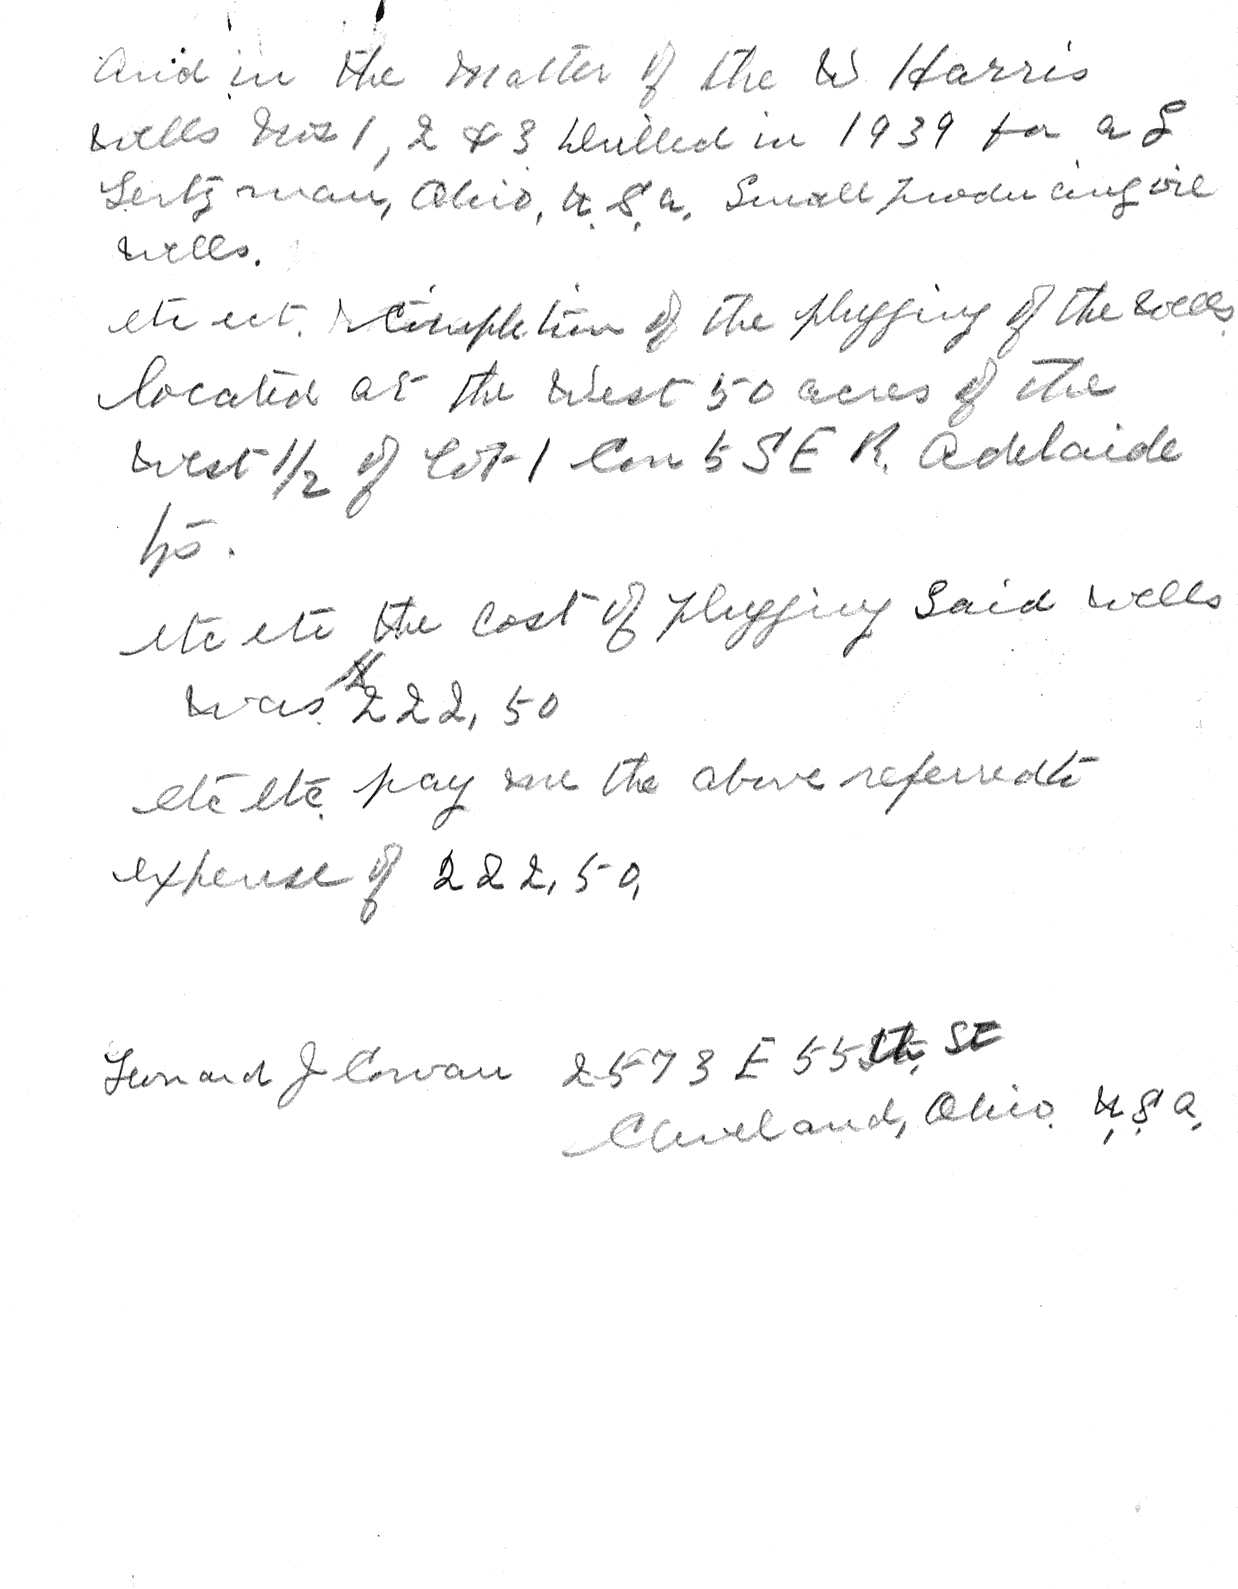 And in the matter of the W Harris
wells Nos 1, 2 & 3 Drilled in 1939 for A S
Gertzman, Ohio, U.S.A. Small producing oil
wells.
etc ect. Completion of the plugging of the wells
located at the West 50 acres of the
West 1/2 of Lot 1 Con 5 S E R. Adelaide
tp.
etc etc the cost of plugging said wells
was 222,50
etc etc. pay me the above referred to
expense of 222,50,
Leonard J Cowan 2573 E 55th St
Cleveland, Ohio. U.S.A.